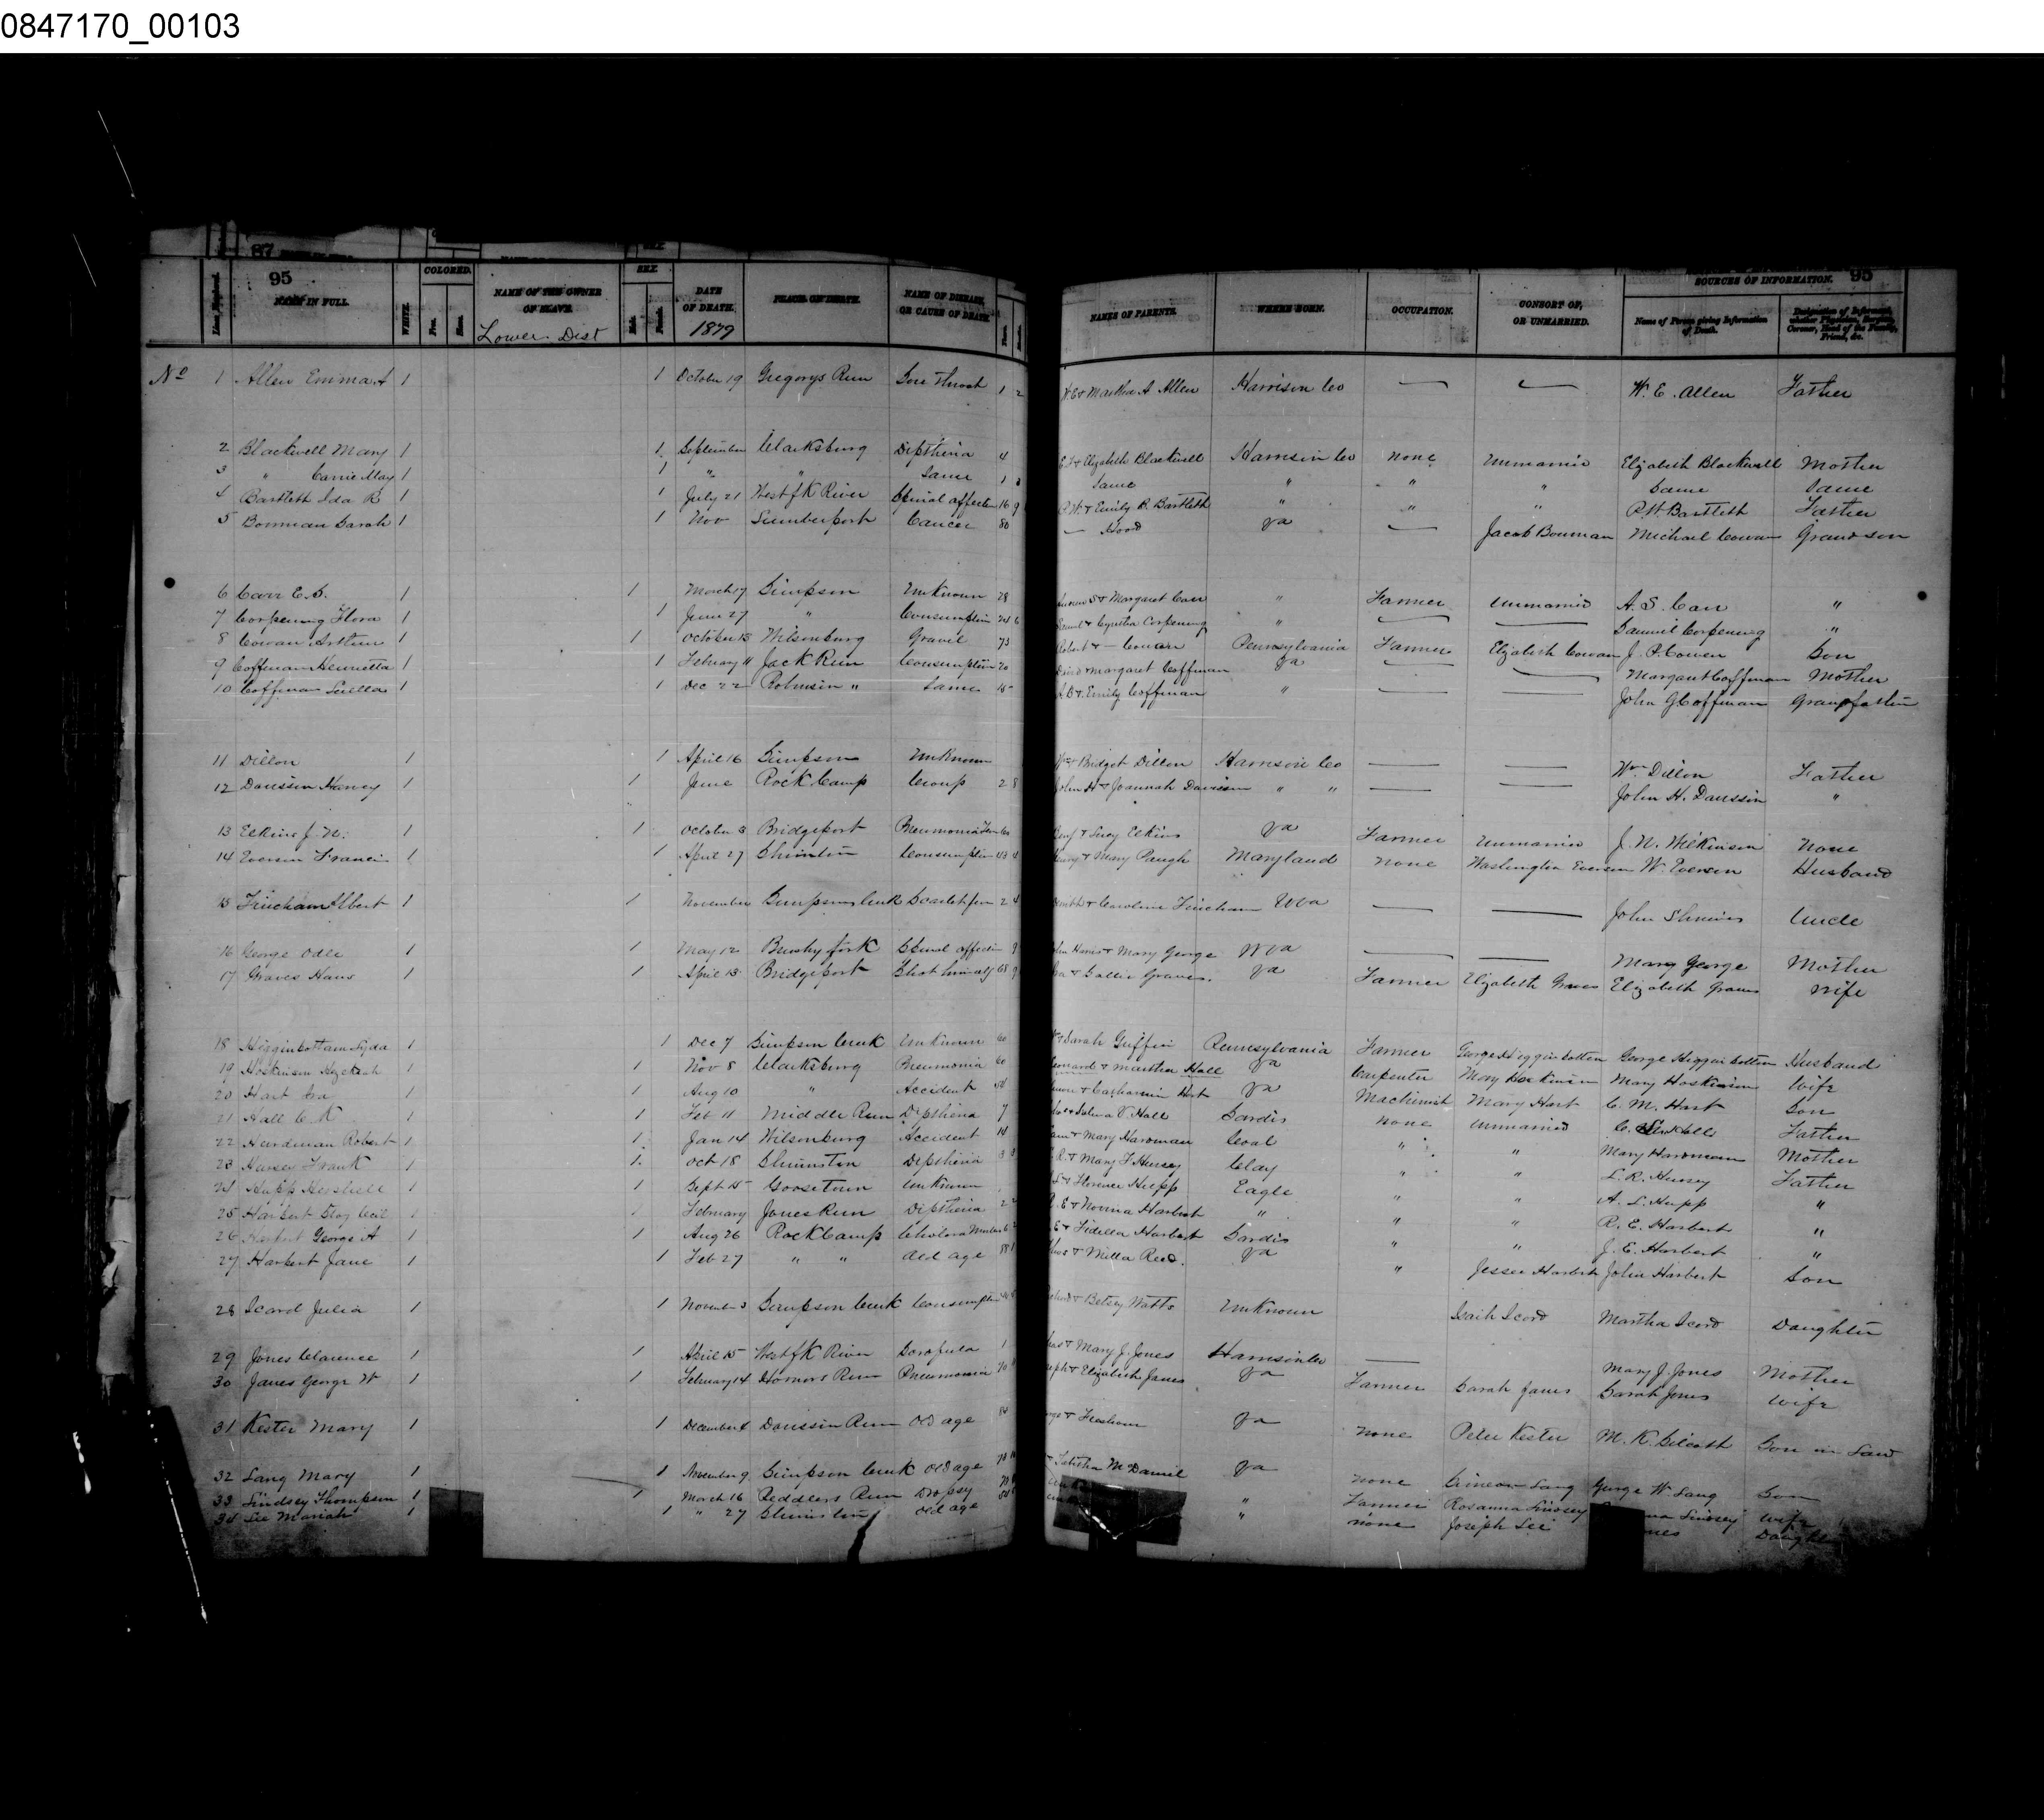 0847170_00103
87
95
NAME IN FULL. WHITE. COLORED. Free. Slave. NAME OF THE OWNER OF SLAVE. SEX. Male. Female. DATE OF DEATH. PLACE OF DEATH. NAME OF DISEASE, OR CAUSE OF DEATH. NAMES OF PARENTS. WHERE BORN. OCCUPATION. CONSORT OF, OR UNMARRIED. SOURCES OF INFORMATION. 95
Name of Person giving Information of Death. Designation of Informant, whether Physician, Surgeon, Coroner, Head of the Family, Friend, &c.
Lower Dist 1879
No 1 Allen Emma A 1 1 October 19 Gregorys Run Sore Throat 1 2 W. E & Martha A Allen Harrison Co — — W. E. Allen Father
2 Blackwell Mary 1 1 September Clarksburg Diptheria 4 & Elizabeth Blackwell Harrison Co none Unmarried Elizabeth Blackwell Mother
3 " Carrie May 1 1 " " Same 1 Same " " " Same Same
4 Bartlett Ida R 1 1 July 21 West fk River Spinal affection 16 9 & Emily R. Bartlett " " " Bartlett Father
5 Bowman Sarah 1 1 Nov Lumberport Cancer 80 — Hood Va — Jacob Bowman Michael Cowan Grandson
6 Carr E. S. 1 1 March 17 Simpson Unknown 28 & Margaret Carr " Farmer Unmarried A. S. Carr "
7 Corpening Flora 1 1 June 27 " Consumption 24 6 Samuel & Cyntha Corpening " — — Samuel Corpening "
8 Cowan Arthur 1 1 October 18 Wilsonburg Gravil 73 Robert & — Cowan Pennsylvania Farmer Elizabeth Cowan J. P. Cowen Son
9 Coffman Henrietta 1 1 Februay 11 Jack Run Consumption 20 David & Margaret Coffman Va — — Margaret Coffman Mother
10 Coffman Luella 1 1 Dec 22 Robinson " Same 15 & Emily Coffman " — — John G Coffman Grandfather
11 Dillon 1 1 April 16 Simpson Unknown Wm & Bridget Dillon Harrison Co — — Wm Dillon Father
12 Davisson Harvey 1 1 June Rock Camp Croup 2 8 John H & Joannah Davisson " " — — John H. Davisson "
13 Elkins J. N. 1 1 October 3 Bridgeport Pneumonia 60 Benj & Lucy Elkins Va Farmer Unmarried J. N. Wilkinson None
14 Everson Francis 1 1 April 27 Shinston Consumption 43 & Mary Pangh Maryland none Washington Everson W. Everson Husband
15 Fincham Albert 1 1 November Simpsons Creek Scarlet fever 2 4 & Caroline Fincham W Va — — John Shuers Uncle
16 George Odle 1 1 May 12 Brushy fork Spinal affection 9 John Harris & Mary George W Va — — Mary George Mother
17 Graves Hans 1 1 April 15 Bridgeport Shot himself 68 9 & Sallie Graves Va Farmer Elizabeth Graves Elizabeth Graves Wife
18 Higginbottam Lyda 1 1 Dec 7 Simpson Creek Unknown 60 & Sarah Griffin Pennsylvania Farmer George Higginbotten George Higginbotten Husband
19 Hoskinson Hezekiah 1 1 Nov 8 Clarksburg Pneumonia 60 Leonard & Martha Hall Va Carpenter Mary Hoskinson Mary Hoskinson Wife
20 Hart Ira 1 1 Aug 10 " Accident & Catharine Hart Va Machinist Mary Hart C. M. Hart Son
21 Hall C. K 1 1 Feb 11 Middle Run Diptheria 7 V. Hall Sardis none Unmarried C. Hall Father
22 Hardman Robert 1 1 Jan 14 Wilsonburg Accident 14 & Mary Hardman Coal " " Mary Hardman Mother
23 Hursey Frank 1 1 Oct 18 Shinnston Diptheria 3 3 & Mary F Hursey Clay " " L. R. Hursey Father
24 Hupp Hershell 1 1 Sept 15 Goosetown Unknown & Florence Hupp Eagle " " A. L. Hupp "
25 Harbert Clay Cecil 1 1 February Jones Run Diptheria 2 2 R. E & Norma Harbert " " " R. E. Harbert "
26 Harbert George A 1 1 Aug 26 Rock Camp Cholora Morbus E & Fidella Harbert Sardis " " J. E. Harbert "
27 Harbert Jane 1 1 Feb 27 " " Old age 88 1 & Milla Reed. Va " Jesse Harbert John Harbert Son
28 Icard Julia 1 1 November 3 Simpson Creek Consumption & Betsey Watts Unknown Isaih Icord Martha Icord Daughter
29 Jones Clarence 1 1 April 15 West fk River Scrofula 1 & Mary J. Jones Harrison Co — Mary J. Jones Mother
30 Janes George W 1 1 February 14 Homors Run Pneumonia 70 & Elizabeth Janes Va Farmer Sarah Janes Sarah Jones Wife
31 Kester Mary 1 1 December 6 Davisson Run Old age 84 & Freshour Va None Peter Kester M. K. Son in Law
32 Lang Mary 1 1 November 9 Simpson Creek Old age 78 & Tabitha McDaniel Va none Simeon Lang George W Lang Son
33 Lindsey Thompson 1 1 March 16 Peddlers Run Dropsy " Farmer Rosanna Lindsey Lindsey Wife
34 Lee Mariah 1 1 " 27 Shinston Old age 84 " none Joseph Lee Daughter